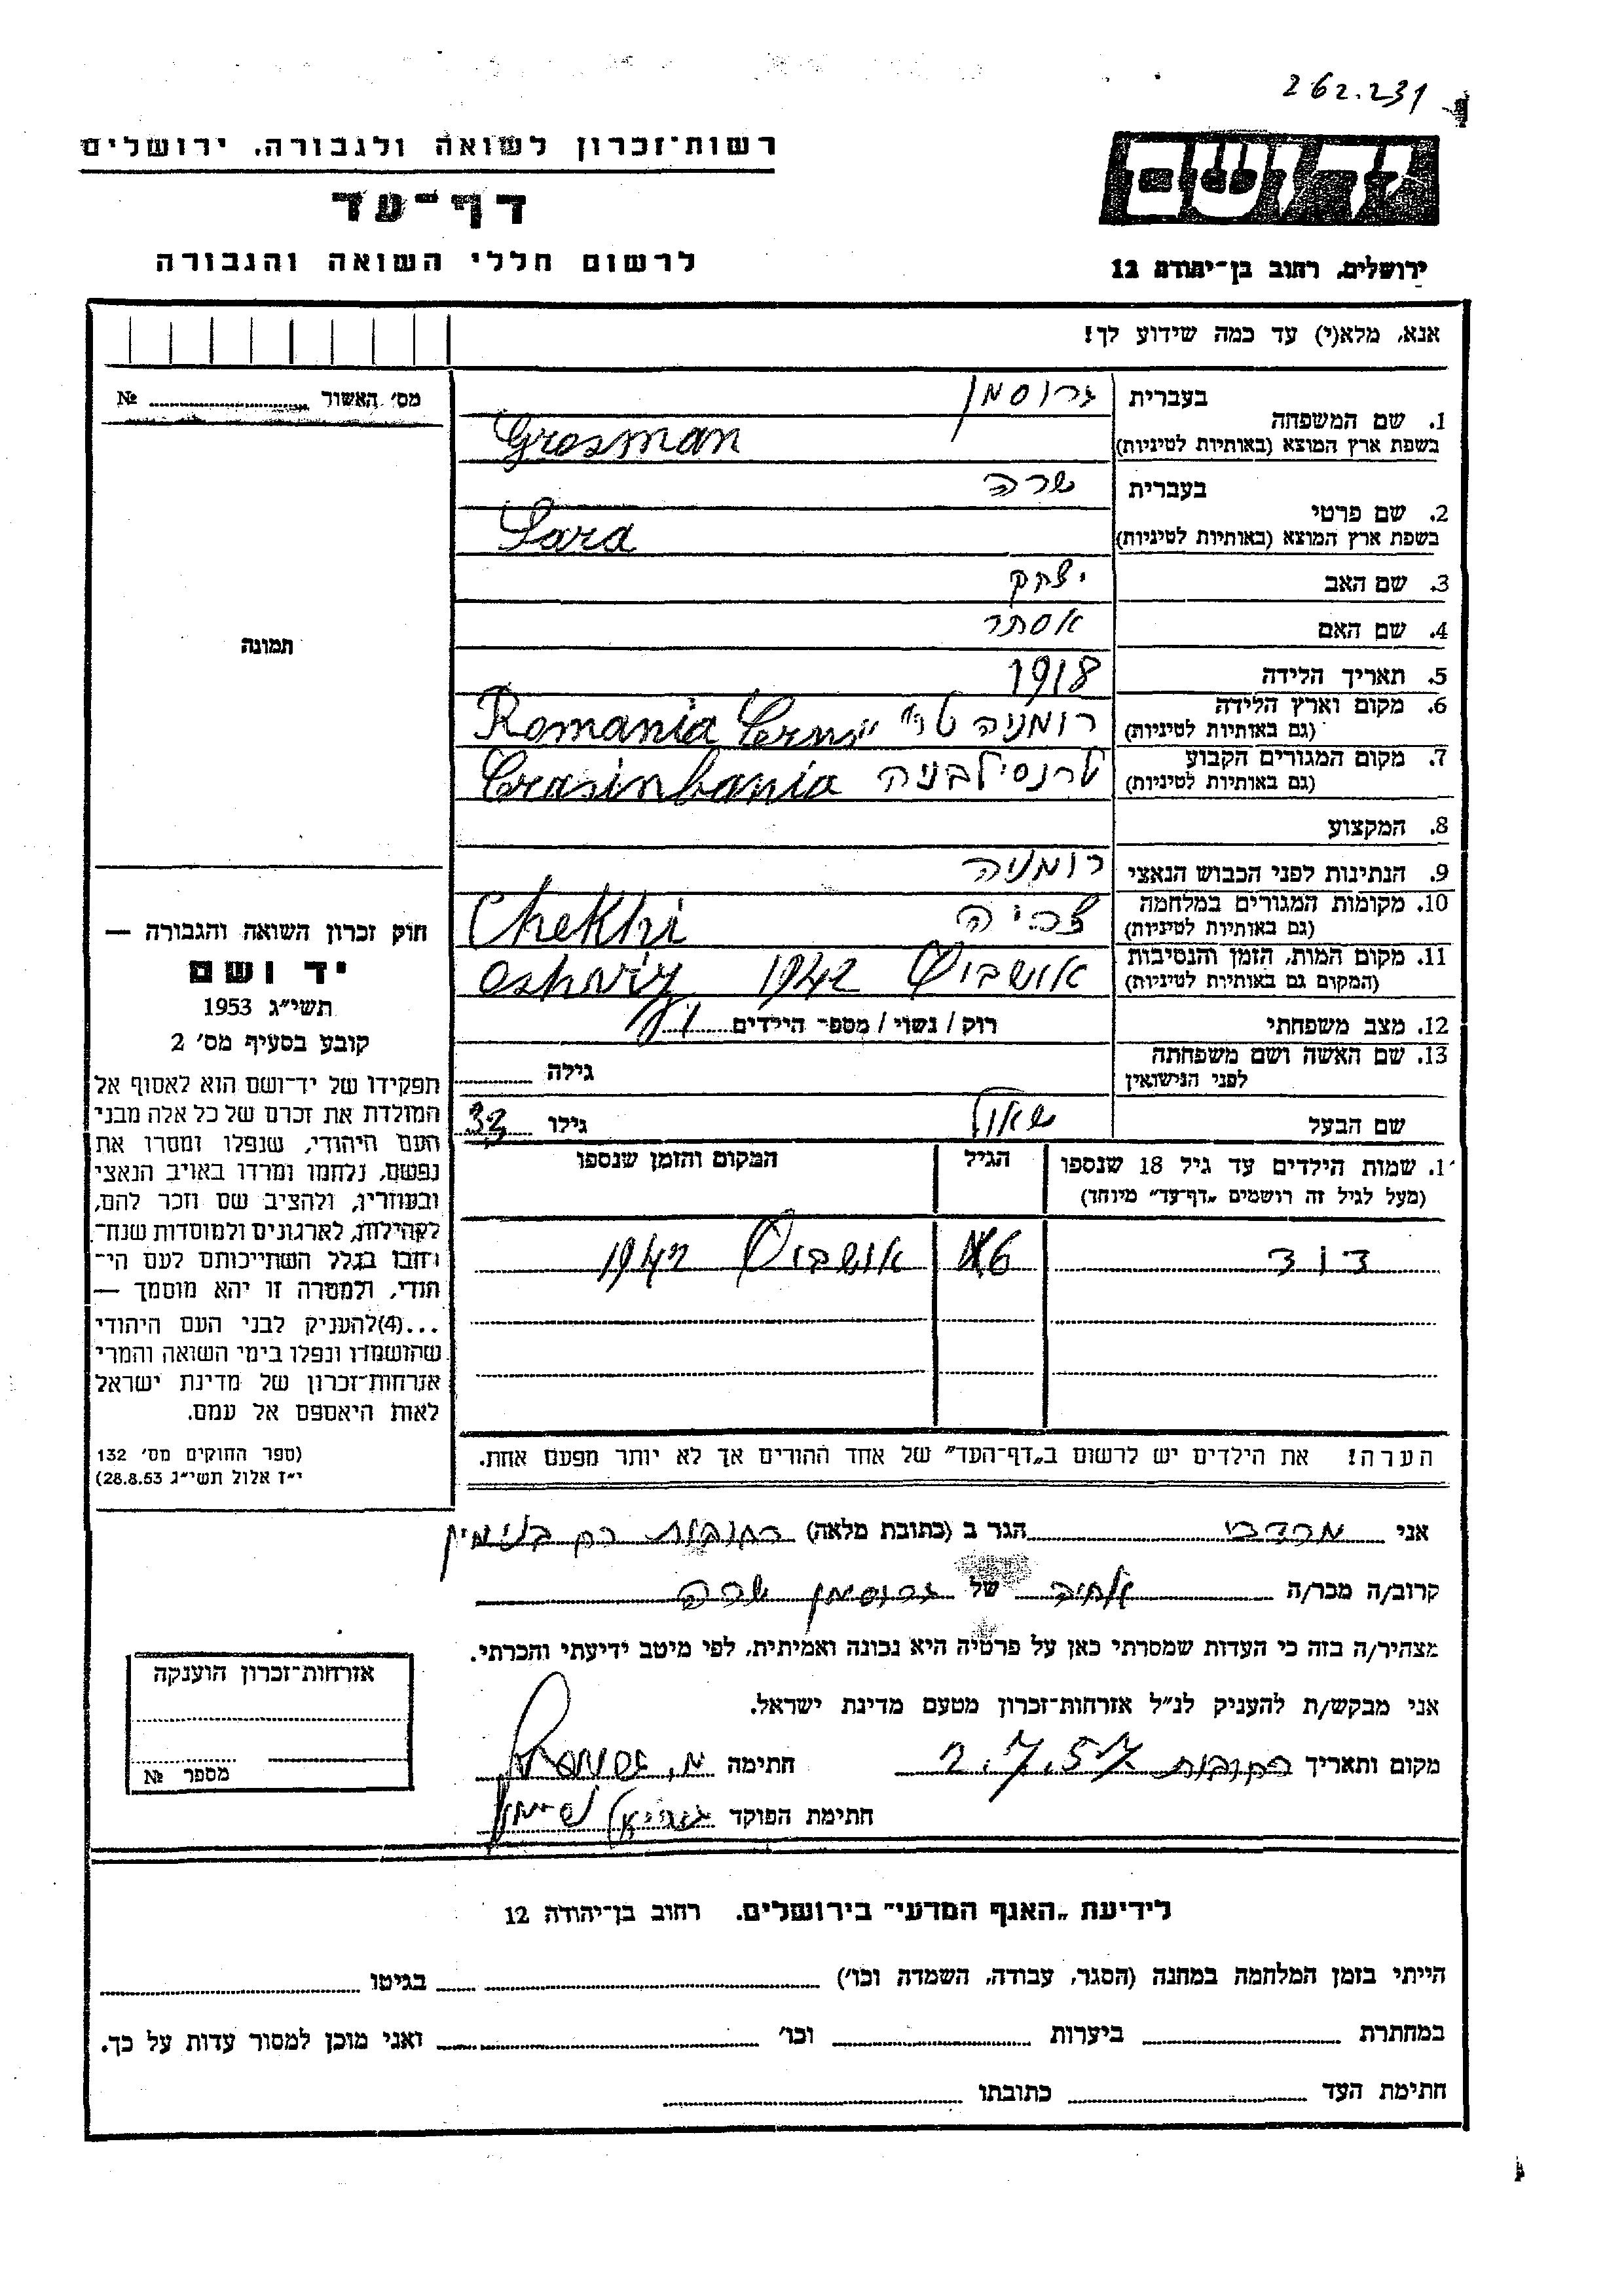 262.231
רשות־זכרון לשואה ולגבורה, ירושלים
דף־עד
לרשום חללי השואה והגבורה
יד ושם
ירושלים, רחוב בן־יהודה 12
אנא, מלא(י) עד כמה שידוע לך!
מס׳ האשור № 
תמונה
1. שם המשפחה בעברית גרוסמן
בשפת ארץ המוצא (באותיות לטיניות) Grosman
2. שם פרטי בעברית שרה
בשפת ארץ המוצא (באותיות לטיניות) Sara
3. שם האב יצחק
4. שם האם אסתר
5. תאריך הלידה 1918
6. מקום וארץ הלידה רומניה Romania
(גם באותיות לטיניות)
7. מקום המגורים הקבוע טרנסילבניה Trasinbania
(גם באותיות לטיניות)
8. המקצוע
9. הנתינות לפני הכבוש הנאצי רומניה
10. מקומות המגורים במלחמה צכיה Chekhi
(גם באותיות לטיניות)
11. מקום המות, הזמן והנסיבות אושביץ 1942 oshviz
(המקום גם באותיות לטיניות)
12. מצב משפחתי רוק / נשוי / מספר הילדים 1
13. שם האשה ושם משפחתה גילה
לפני הנישואין
שם הבעל שאול גילו 32
1. שמות הילדים עד גיל 18 שנספו הגיל המקום והזמן שנספו
(מעל לגיל זה רושמים „דף־עד״ מיוחד)
דוד 6 אושביץ 1942
הערה! את הילדים יש לרשום ב„דף־העד״ של אחד ההורים אך לא יותר מפעם אחת.
חוק זכרון השואה והגבורה —
יד ושם
תשי״ג 1953
קובע בסעיף מס׳ 2
תפקידו של יד־ושם הוא לאסוף אל
המולדת את זכרם של כל אלה מבני
העם היהודי, שנפלו ומסרו את
נפשם, נלחמו ומרדו באויב הנאצי
ובעוזריו, ולהציב שם וזכר להם,
לקהילות, לארגונים ולמוסדות שנח־
רחבו בגלל השתייכותם לעם הי־
הודי, ולמטרה זו יהא מוסמך —
...(4)להעניק לבני העם היהודי
שהושמדו ונפלו בימי השואה והמרי
אזרחות־זכרון של מדינת ישראל
לאות היאספם אל עמם.
(ספר החוקים מס׳ 132
י״ז אלול תשי״ג 28.8.53)
אני מרדכי הגר ב (כתובת מלאה) רחובות בנימין
קרוב/ה מכר/ה אחיה של גרוסמן שרה
מצהיר/ה בזה כי העדות שמסרתי כאן על פרטיה היא נכונה ואמיתית, לפי מיטב ידיעתי והכרתי.
אני מבקש/ת להעניק לנ״ל אזרחות־זכרון מטעם מדינת ישראל.
מקום ותאריך רחובות 2.7.57 חתימה
חתימת הפוקד
אזרחות־זכרון הוענקה
מספר №
לידיעת „האגף המדעי״ בירושלים. רחוב בן־יהודה 12
הייתי בזמן המלחמה במחנה (הסגר, עבודה, השמדה וכו׳) בגיטו
במחתרת ביערות וכו׳ ואני מוכן למסור עדות על כך.
חתימת העד כתובתו